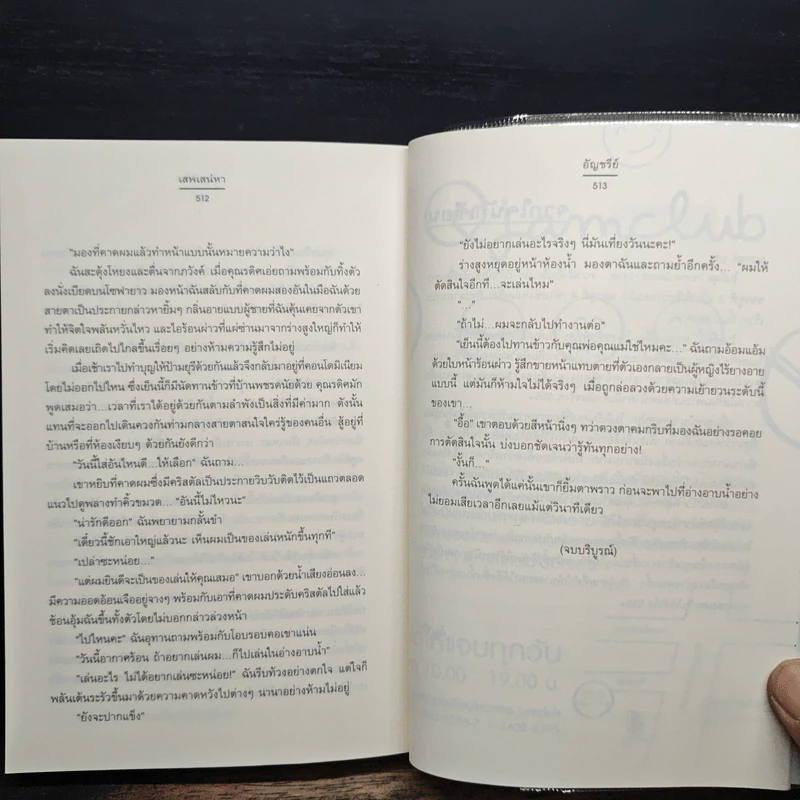 เสพเสน่หา
512
"มองที่คาดผมแล้วทำหน้าแบบนั้นหมายความว่าไง"
ฉันสะดุ้งโหยงและตื่นจากภวังค์ เมื่อคุณรติศเอ่ยถามพร้อมกับทิ้งตัว
ลงนั่งเบียดบนโซฟายาว มองหน้าฉันสลับกับที่คาดผมสองอันในมือฉันด้วย
สายตาเป็นประกายกล่าวหายิ้มๆ กลิ่นอายแบบผู้ชายที่ฉันคุ้นเคยจากตัวเขา
ทำให้จิตใจพลันหวั่นไหว และไอร้อนผ่าวที่แผ่ซ่านมาจากร่างสูงใหญ่ก็ทำให้
เริ่มคิดเลยเถิดไปไกลขึ้นเรื่อยๆ อย่างห้ามความรู้สึกไม่อยู่
เมื่อเช้าเราไปทำบุญให้ป้ามยุรีด้วยกันแล้วจึงกลับมาอยู่ที่คอนโดมิเนียม
โดยไม่ออกไปไหน ซึ่งเย็นนี้ก็มีนัดทานข้าวที่บ้านพชรดนัยด้วย คุณรติศมัก
พูดเสมอว่า...เวลาที่เราได้อยู่ด้วยกันตามลำพังเป็นสิ่งที่มีค่ามาก ดังนั้น
แทนที่จะออกไปเดินควงกันท่ามกลางสายตาสนใจใคร่รู้ของคนอื่น สู้อยู่ที่
บ้านหรือที่ห้องเงียบๆ ด้วยกันยังดีกว่า
"วันนี้ใส่อันไหนดี...ให้เลือก" ฉันถาม...
เขาหยิบที่คาดผมซึ่งมีคริสตัลเป็นประกายวิบวับติดไว้เป็นแถวตลอด
แนวไปดูพลางทำคิ้วขมวด... "อันนี้ไม่ไหวนะ"
"น่ารักดีออก" ฉันพยายามกลั้นขำ
"เดี๋ยวนี้ชักเอาใหญ่แล้วนะ เห็นผมเป็นของเล่นหนักขึ้นทุกที"
"เปล่าซะหน่อย..."
"แต่ผมยินดีจะเป็นของเล่นให้คุณเสมอ" เขาบอกด้วยน้ำเสียงอ่อนลง...
มีความออดอ้อนเจืออยู่จางๆ พร้อมกับเอาที่คาดผมประดับคริสตัลไปใส่แล้ว
ช้อนอุ้มฉันขึ้นทั้งตัวโดยไม่บอกกล่าวล่วงหน้า
"ไปไหนคะ" ฉันอุทานถามพร้อมกับโอบรอบคอเขาแน่น
"วันนี้อากาศร้อน ถ้าอยากเล่นผม...ก็ไปเล่นในอ่างอาบน้ำ"
"เล่นอะไร ไม่ได้อยากเล่นซะหน่อย!" ฉันรีบท้วงอย่างตกใจ แต่ใจก็
พลันเต้นระรัวขึ้นมาด้วยความคาดหวังไปต่างๆ นานาอย่างห้ามไม่อยู่
"ยังจะปากแข็ง"
อัญชรีย์
513
"ยังไม่อยากเล่นอะไรจริงๆ นี่มันเที่ยงวันนะคะ!"
ร่างสูงหยุดอยู่หน้าห้องน้ำ มองตาฉันและถามย้ำอีกครั้ง... "ผมให้
ตัดสินใจอีกที...จะเล่นไหม"
"..."
"ถ้าไม่...ผมจะกลับไปทำงานต่อ"
"เย็นนี้ต้องไปทานข้าวกับคุณพ่อคุณแม่ใช่ไหมคะ..." ฉันถามอ้อมแอ้ม
ด้วยใบหน้าร้อนผ่าว รู้สึกขายหน้าแทบตายที่ตัวเองกลายเป็นผู้หญิงไร้ยางอาย
แบบนี้ แต่มันก็ห้ามใจไม่ได้จริงๆ เมื่อถูกล่อลวงด้วยความเย้ายวนระดับนี้
ของเขา...
"อื้อ" เขาตอบด้วยสีหน้านิ่งๆ ทว่าดวงตาคมกริบที่มองฉันอย่างรอคอย
การตัดสินใจนั้น บ่งบอกชัดเจนว่ารู้ทันทุกอย่าง!
"งั้นก็..."
ครั้นฉันพูดได้แค่นั้นเขาก็ยิ้มตาพราว ก่อนจะพาไปที่อ่างอาบน้ำอย่าง
ไม่ยอมเสียเวลาอีกเลยแม้แต่วินาทีเดียว
(จบบริบูรณ์)